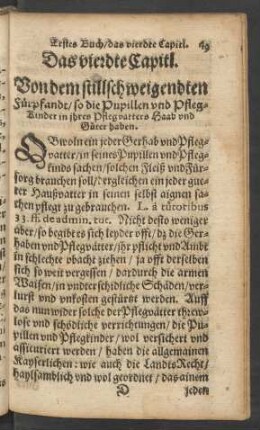 Erstes Buch/das vierdte Capitl.
Das vierdte Capitl.
Von dem stillschweigendten
Fürpfandt/so die Pupillen vnd Pfleg-
Kinder in jhres Pflegvatters Haab vnd
Güter haben.
OBwoln ein jeder Gerhab vnd Pfleg-
vatter/in seines Pupillen vnd Pfleg-
kinds sachen/solchen Fleiß vnd Für-
sorg brauchen soll/dergleichen ein jeder gue-
ter Haußvatter in seinen selbst aignen sa-
chen pflegt zu gebrauchen. L. à tutoribus
33. ff. de admin. tut. Nicht desto weniger
aber/so begibt es sich leyder offt/dz die Ger-
haben vnd Pflegvätter/jhr pflicht vnd Ambt
in schlechte obacht ziehen/ja offt derselben
sich so weit vergessen/dardurch die armen
Waisen/in vnderschidliche Schäden/ver-
lurst vnd vnkosten gestürtzt werden. Auff
das nun wider solche der Pflegvätter threw-
lose vnd schödliche verrichtungen/die Pu-
pillen vnd Pflegkinder/wol versichert vnd
assicuriert werden/haben die allgemainen
Kayserlichen: wie auch die Landts Recht/
haylsamblich vnd wol geordnet/das ainem
D jeden